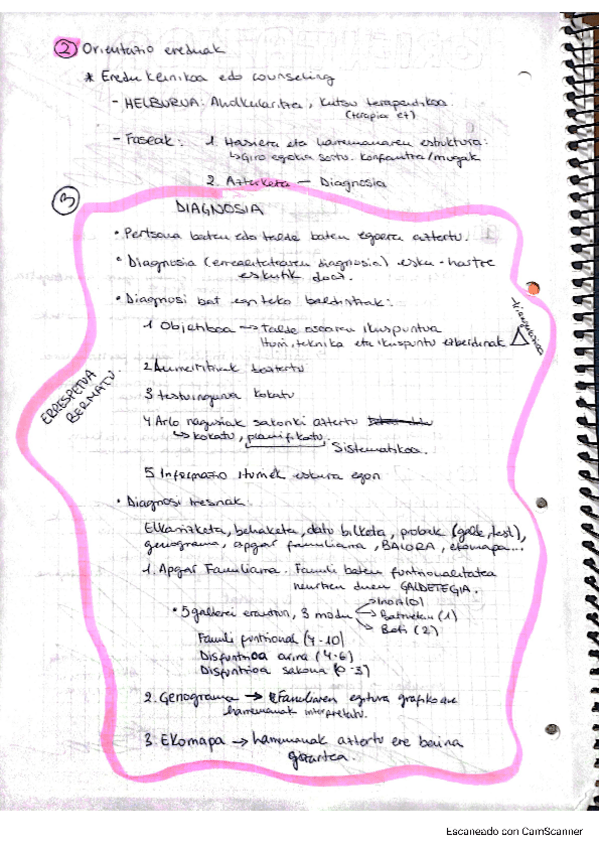 2 Orientazio ereduak
* Eredu klinikoa edo counseling
- HELBURUA: Aholkularitza, kutsu terapeutikoa.
(terapia ez)
- Faseak: 1. Hasiera eta harremanaren estruktura:
↳ Giro egokia sortu. Konfiantza/mugak
2. Azterketa — Diagnosia
3
DIAGNOSIA
• Pertsona baten edo talde baten egoera aztertu.
• Diagnosia (errealitatearen diagnosia) esku-hartze
eskutik doa.
• Diagnosi bat egiteko baldintzak:
1 Objetiboa → Talde osoaren ikuspuntua
Iturri, teknika eta ikuspuntu ezberdinak
2 Aurreiritziak baztertu
3 testuingurua kokatu
4 Arlo nagusiak sakonki aztertu
↳ kokatu, planifikatu.
Sistematikoa.
5 Informazio iturriek eskura egon
ERRESPETUA
BERMATU
• Diagnosi tresnak.
Elkarrizketa, behaketa, datu bilketa, probak (galde, test),
genograma, apgar familiarra, BALORA, ekomapa...
1. Apgar Familiarra. Famili baten funtzionalitatea
neurtzen duen GALDETEGIA.
• 5 galderei erantzun, 3 modu → Inoiz (0)
→ Batzuetan (1)
→ Beti (2)
Famili funtzional (7-10)
Disfuntzioa arina (4-6)
Disfuntzioa sakona (0-3)
2. Genograma → Familiaren egitura grafikoane
harremanak interpretatu.
3. Ekomapa → harremanak aztertu ere baina
gizartea.
Escaneado con CamScanner